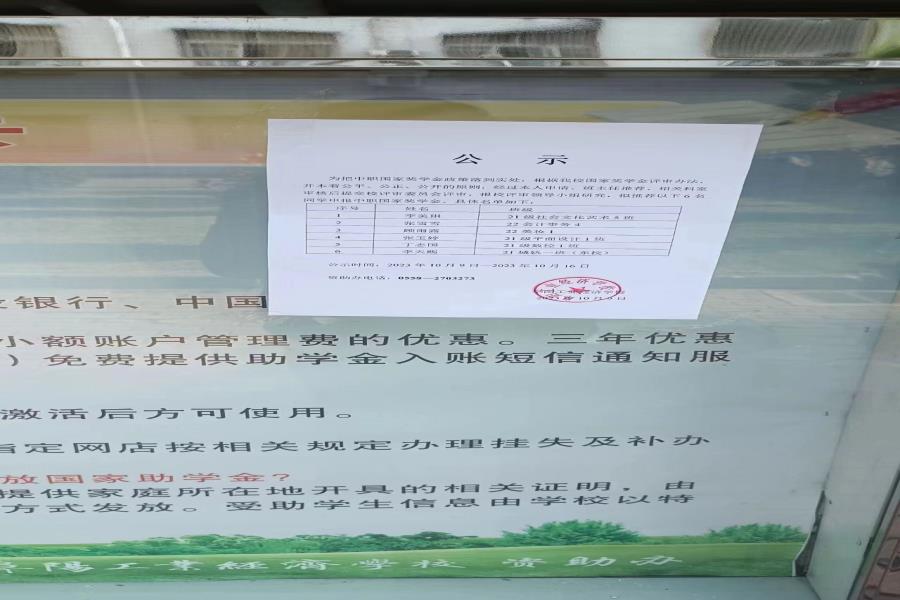 公 示
为把中职国家奖学金政策落到实处，根据我校国家奖学金评审办法，
并本着公平、公正、公开的原则；经过本人申请、班主任推荐，相关科室
审核后提交校评审委员会评审，报校评审领导小组研究，拟推荐以下6名
同学申报中职国家奖学金，具体名单如下：
序号 姓名 班级
1 21级社会文化艺术5班
2 张雪雪 22会计事务4
3 顾雨露 22美妆1
4 张玉婷 21级平面设计1班
5 丁志国 21级数控1班
6 李天赐 21城轨一班（东校）
公示时间：2023年10月9日—2023年10月16日
资助办电话：0558—2703273
10月9日
银行、中国
小额账户管理费的优惠。三年优惠
）免费提供助学金入账短信通知服
激活后方可使用。
指定网店按相关规定办理挂失及补办
放国家助学金？
提供家庭所在地开具的相关证明，由
方式发放。受助学生信息由学校以特
阳工业经济学校 资助办